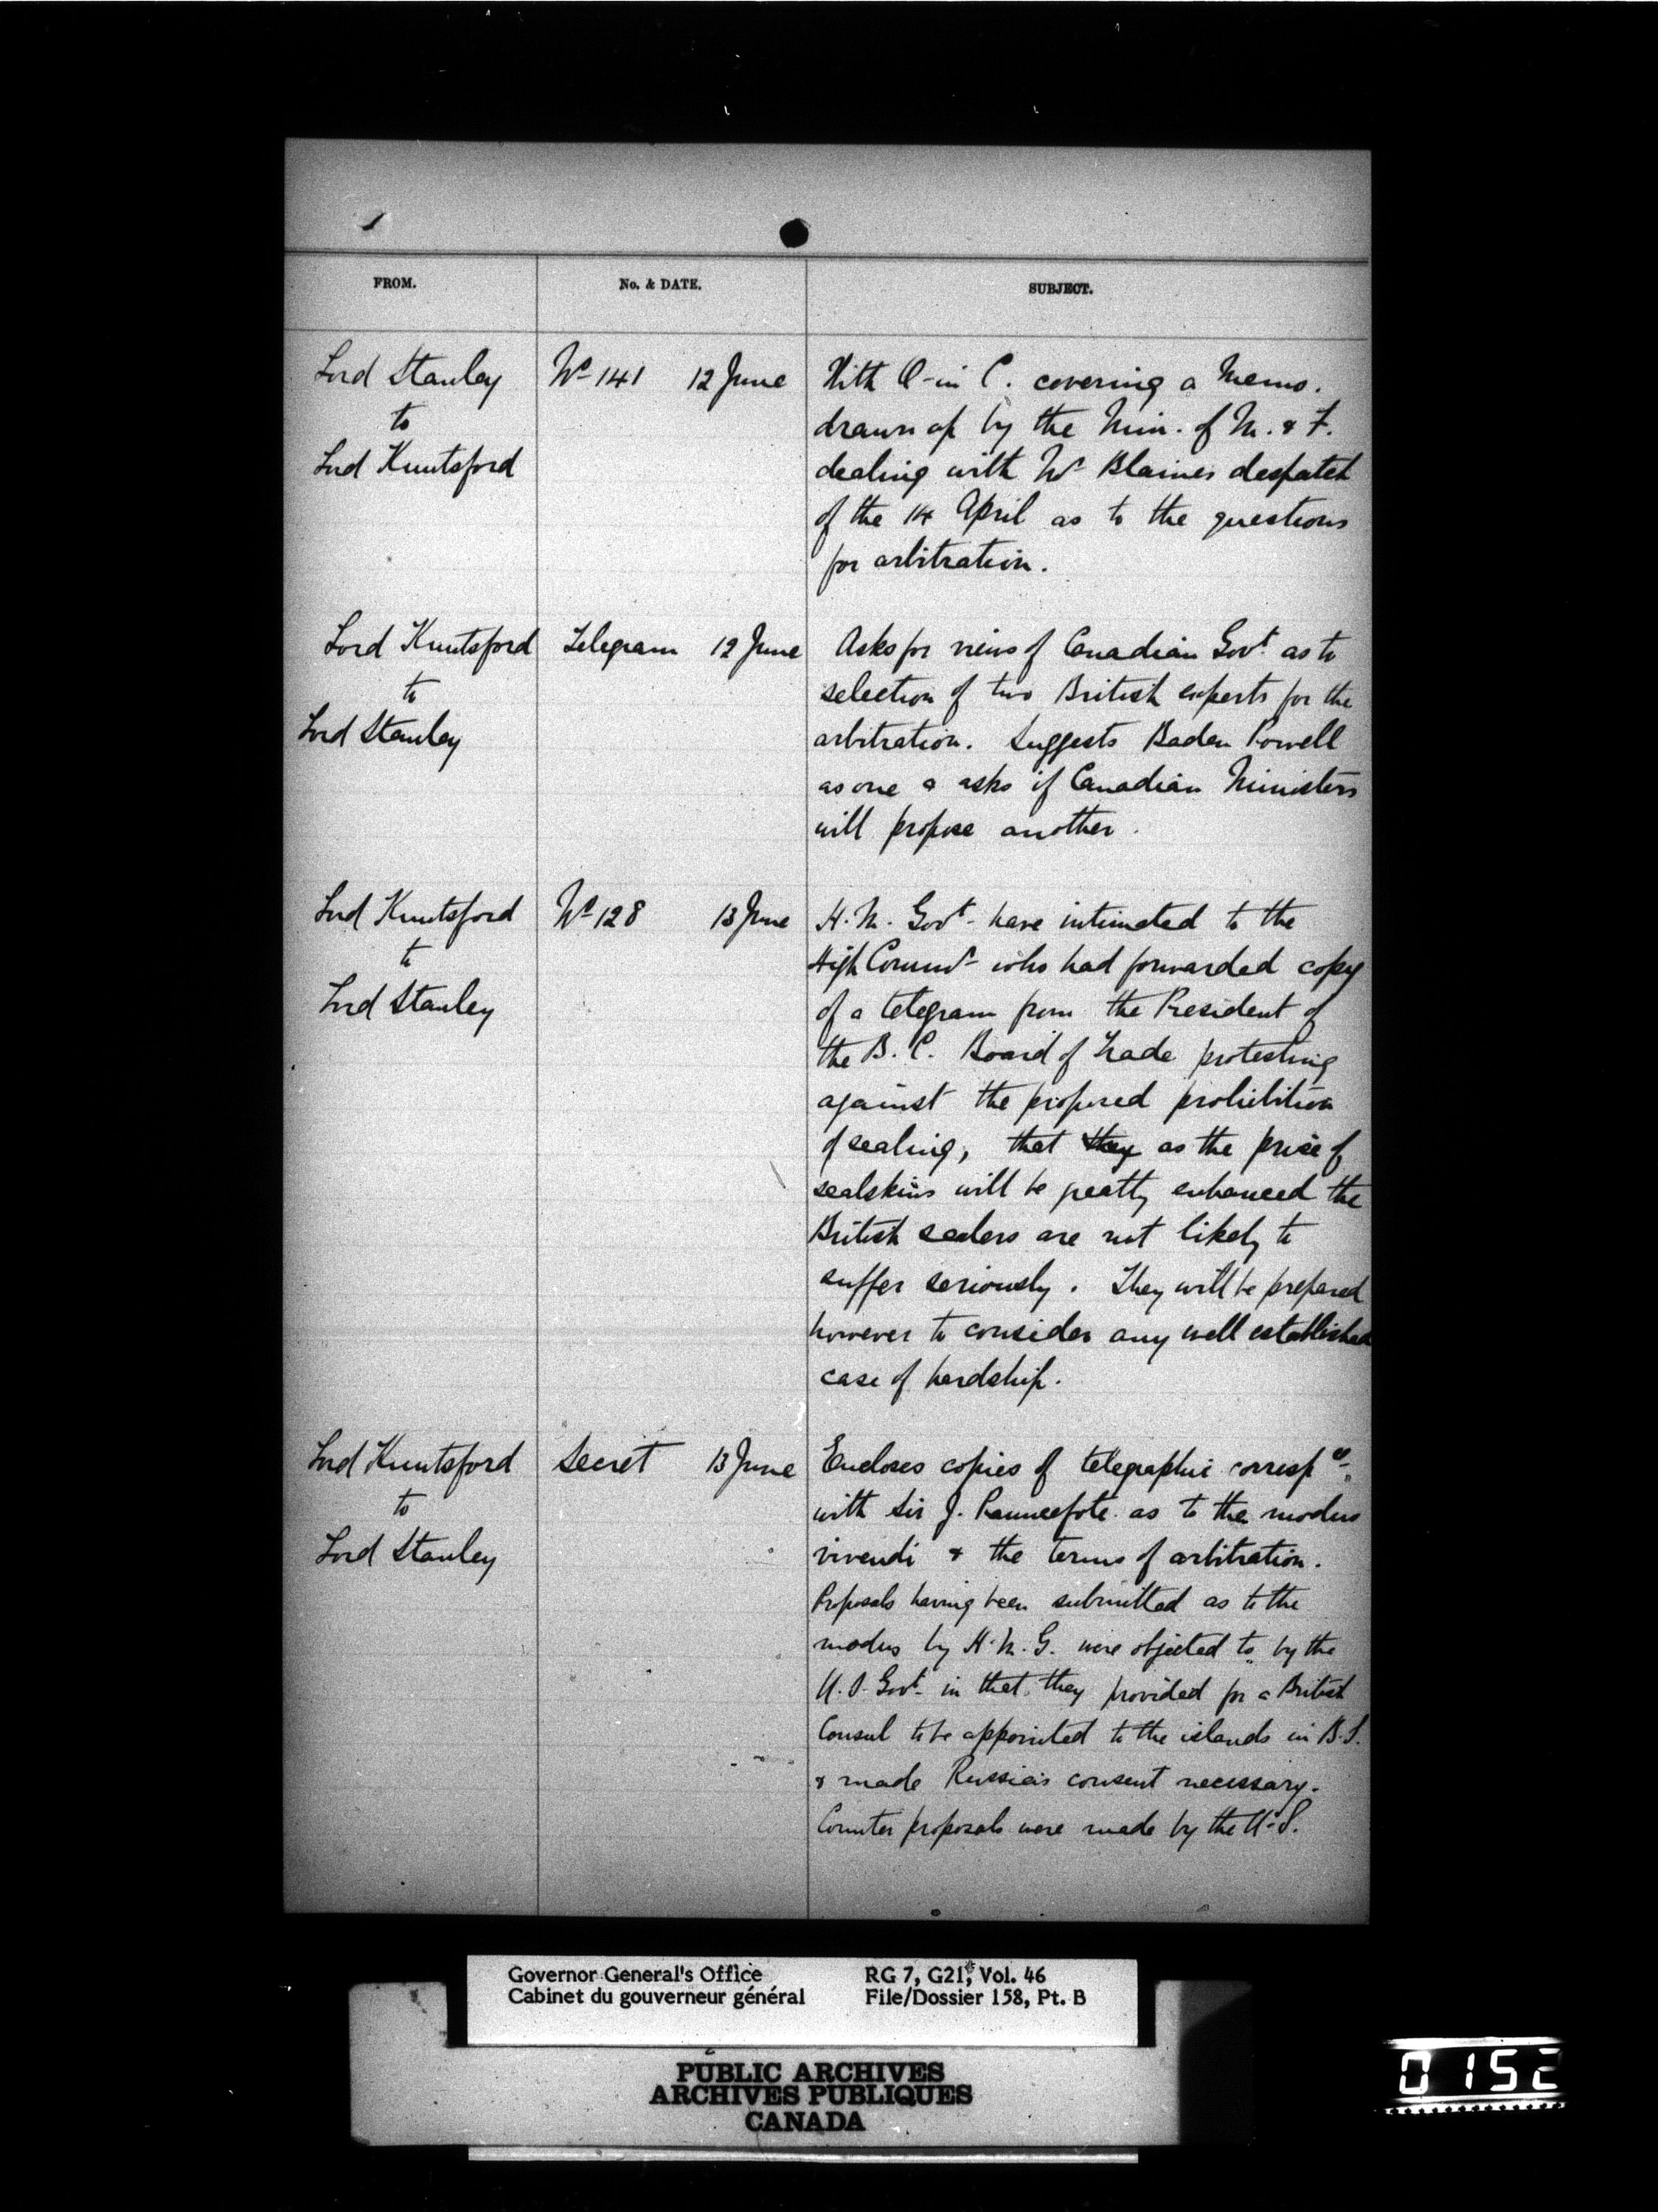 FROM. No. & DATE. SUBJECT.
Lord Stanley No 141 12 June With O-in C. covering a Memo.
to drawn up by the Min. of M. & F.
Lord Knutsford dealing with Mr Blaines despatch
of the 14 April as to the questions
for arbitration.
Lord Knutsford Telegram 12 June Asks for views of Canadian Govt. as to
to selection of two British experts for the
Lord Stanley arbitration. Suggests Baden Powell
as one & asks if Canadian Ministers
will propose another.
Lord Knutsford No 128 13 June H.M. Govt. have intimated to the
to High Commr who had forwarded copy
Lord Stanley of a telegram from the President of
the B.C. Board of Trade protesting
against the proposed prohibition
of sealing, that they as the price of
sealskins will be greatly enhanced the
British sealers are not likely to
suffer seriously. They will be prepared
however to consider any well established
case of hardship.
Lord Knutsford Secret 13 June Encloses copies of telegraphic corresp ce
to with Sir J. Pauncefote as to the modus
Lord Stanley vivendi & the terms of arbitration.
Proposals having been submitted as to the
modus by H.M.G. were objected to by the
U.S. Govt. in that they provided for a British
Consul to be appointed to the islands in B.S.
& made Russia's consent necessary.
Counter proposals were made by the U.S.
Governor General's Office RG 7, G21, Vol. 46
Cabinet du gouverneur général File/Dossier 158, Pt. B
PUBLIC ARCHIVES
ARCHIVES PUBLIQUES
CANADA
0152